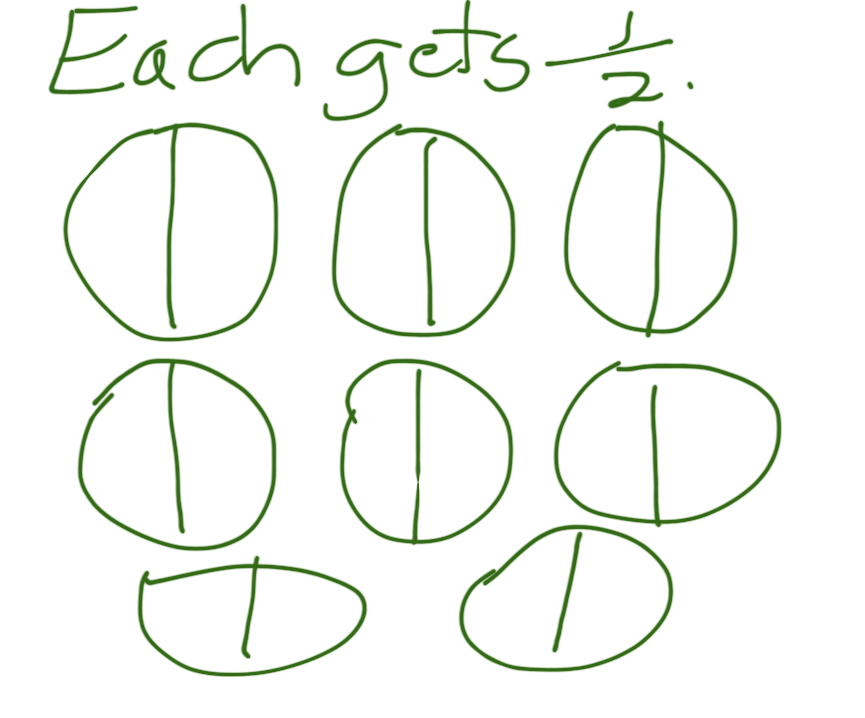 Each gets 1/2.